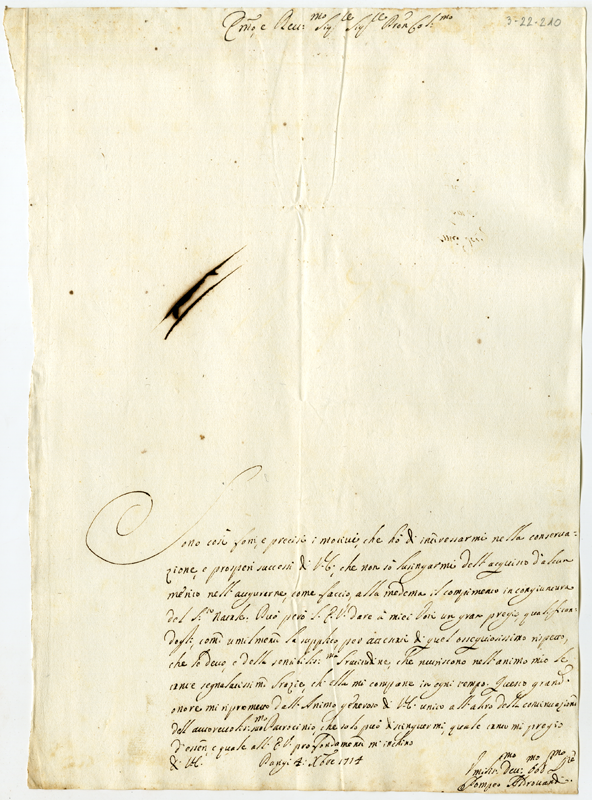 3-22-210
Em̃o, e Reu:mo Sigre Sigre Pron Col:mo
Sono così forti, e precisi i motiui, che hò di interessarmi nella conserua-
zione, e prosperi successi di V: E:, che non sò lusingarmi dell'acquisto d'alcun
merito nell'augurarne, come faccio, alla medema il compimento in congiuntura
del S.mo Natale. Può però l'E. V. dare à miei Voti un gran pregio qualifican-
dogli, come umilmente la supplico per accenti di quel ossequiosissimo rispetto,
che le deuo, e della sensibiliss:ma gratitudine, che nutriscono nell'animo mio le
tante segnalatissime grazie, ch'ella mi comparte in ogni tempo. Questo grand'
onore mi riprometto dall'Animo generoso di V: E: unico all'altro della continuazione
dell'autoreuoliss:mo suo Patrocinio, che solo può distinguermi, quale è mio pregio
d'essere, e quale all'E. V. profondamente m'inchino
di V: E: Parigi 4: Xbre 1714
Umilis:mo Deu:mo Obl:mo Sre
Pompeo Aldrouandi